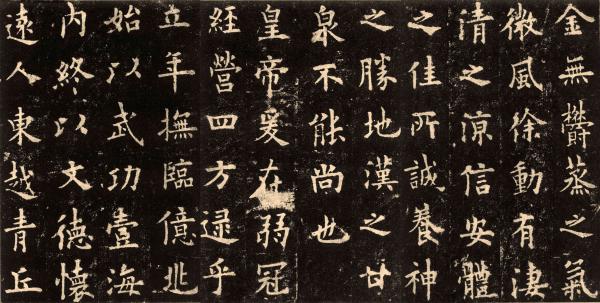 金無欝蒸之氣
微風徐動有淒
清之涼信安體
之佳所誠養神
之勝地漢之甘
泉不能尚也
皇帝爰在弱冠
經營四方逮乎
立年撫臨億兆
始以武功壹海
內終以文德懷
遠人東越青丘